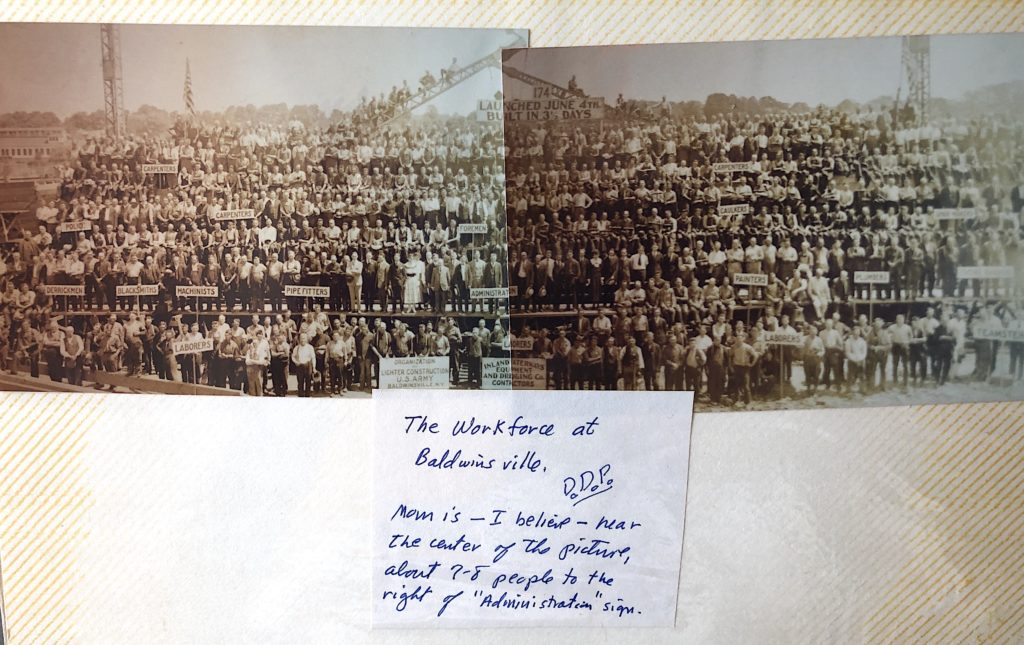 174
LAUNCHED JUNE 4TH.
BUILT IN 3½ DAYS
CARPENTERS
CARPENTERS
CAULKERS
FOREMEN
DERRICKMEN
BLACKSMITHS
MACHINISTS
PIPE FITTERS
ADMINISTRAT
PAINTERS
PLUMBERS
LABORERS
LABORERS
TEAMSTERS
ORGANIZATION
LIGHTER CONSTRUCTION
U.S. ARMY
BALDWINSVILLE, N.Y.
The Workforce at
Baldwinsville.
D.D.P.
Mom is – I believe – near
the center of the picture,
about 7-8 people to the
right of "Administration" sign.